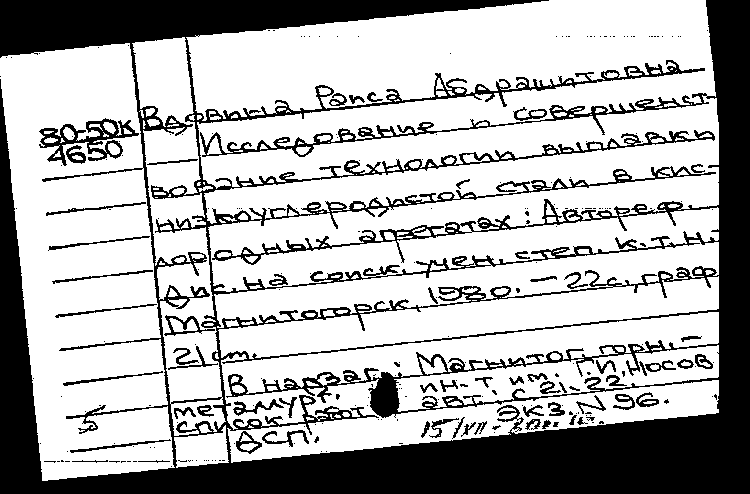 80-50К
4650
Вдовина, Раиса Абдрашитовна
Исследование и совершенст-
вование технологии выплавки
низкоуглеродистой стали в кис-
лородных агрегатах: Автореф.
дис. на соиск. учен. степ. к.т.н.
Магнитогорск, 1980. — 22с., граф
21 cm.
В надзаг.: Магнитог. горн.-
металург. ин-т им. Г.И. Носов
список работ авт. с. 21-22.
ДСП. Экз. N 96.
5 15/XII-80г.